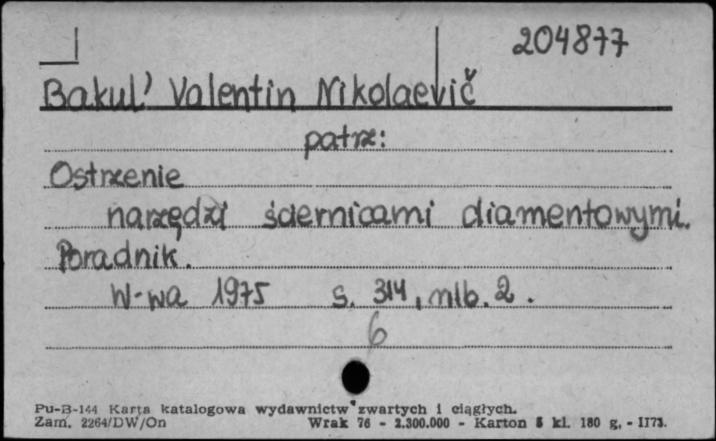 204877
Bakul' Valentin Nikolaevič
patrz:
Ostrzenie
narzędzi ściernicami diamentowymi.
Poradnik.
W-wa 1975 s. 314, nlb. 2.
6
Pu-B-144 Karta katalogowa wydawnictw zwartych i ciągłych.
Zam. 2264/DW/On Wrak 76 - 2.300.000 - Karton 5 kl. 180 g. - II73.